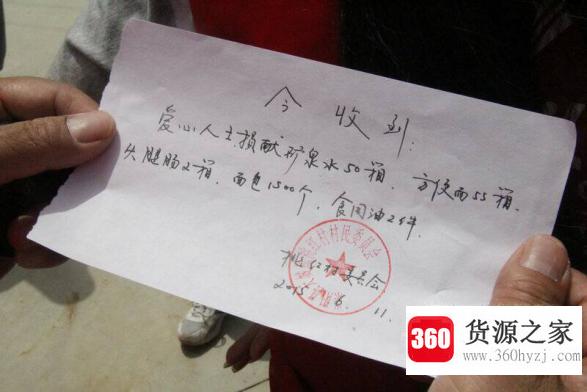 今收到:
爱心人士捐献矿泉水50箱、方便面55箱、
火腿肠2箱、面包1500个、食用油2件.
红村村民委员会
桃红村委员会
2015. 6. 11.
360
货源之家
www.360hyzj.com